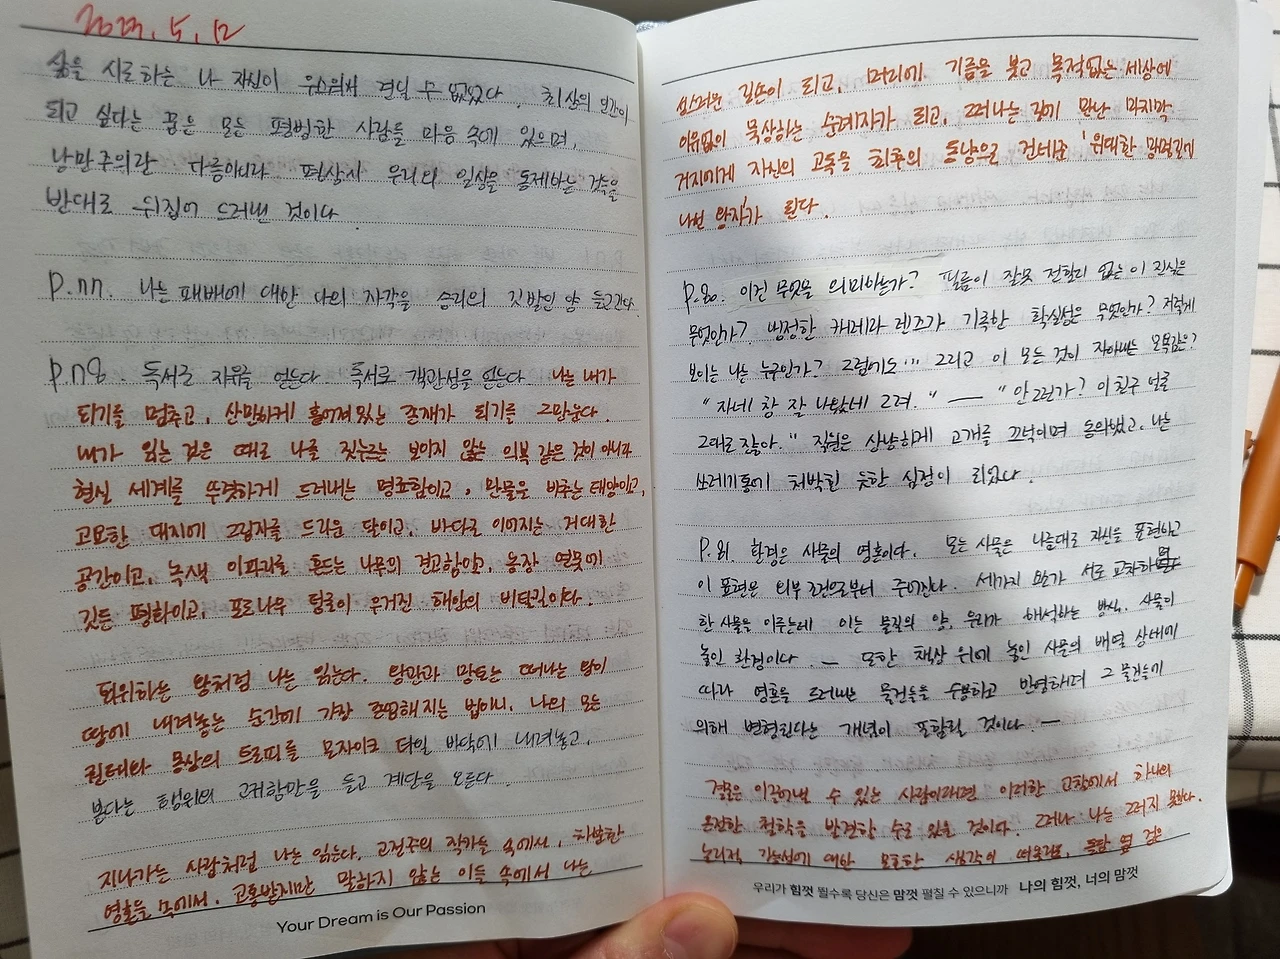 2023. 5. 12
삶을 시로하는 나 자신이 우스워서 견딜 수 없었다. 최상의 인간이
되고 싶다는 꿈은 모든 평범한 사람들 마음 속에 있으며,
낭만주의란 다름아니라 평상시 우리의 일상을 통제하는 것들을
반대로 뒤집어 드러낸 것이다
p.77. 나는 패배에 대한 나의 자각을 승리의 깃발인 양 들고간다
p.78. 독서로 자유를 얻는다. 독서로 객관성을 얻는다 나는 내가
되기를 멈추고, 산만하게 흩어져있는 존재가 되기를 그만둔다.
내가 읽는 것은 때로 나를 짓누르는 보이지 않는 의복 같은 것이 아니라
현실 세계를 뚜렷하게 드러내는 명료함이고, 만물을 비추는 태양이고,
고요한 대지에 그림자를 드리운 달이고, 바다로 이어지는 거대한
공간이고, 녹색 이파리를 흔드는 나무의 견고함이고, 농장 연못에
깃든 평화이고, 포도나무 덩굴이 우거진 해안의 비탈길이다.
퇴위하는 왕처럼 나는 읽는다. 왕관과 망토는 떠나는 왕이
땅에 내려놓는 순간에 가장 존엄해지는 법이니, 나의 모든
권태와 몽상의 트로피를 모자이크 타일 바닥에 내려놓고,
본다는 행위의 고귀함만을 들고 계단을 오른다.
지나가는 사람처럼 나는 읽는다. 고전주의 작가들 속에서, 차분한
영혼들 속에서, 고통받지만 말하지 않는 이들 속에서 나는
Your Dream is Our Passion
성스러운 길손이 되고, 머리에 기름을 붓고 목적없는 세상에
이유없이 묵상하는 순례자가 되고, 떠나는 길에 만난 마지막
거지에게 자신의 고독을 최후의 동냥으로 건네준 '위대한 망명길에
나선 왕자'가 된다.
p.80. 이건 무엇을 의미하는가? 필름이 잘못 전할리 없는 이 진실은
무엇인가? 냉정한 카메라 렌즈가 기록한 확실성은 무엇인가? 저렇게
보이는 나는 누구인가? 그럼에도... 그리고 이 모든 것이 자아내는 모욕감은?
"자네 참 잘 나왔네 그려." — "안 그런가? 이 친구 얼굴
그대로잖아." 직원은 상냥하게 고개를 끄덕이며 동의했고, 나는
쓰레기통에 처박힌 듯한 심정이 되었다.
p.81. 환경은 사물의 영혼이다. 모든 사물은 나름대로 자신을 표현하고
이 표현은 외부 조건으로부터 주어진다. 세가지 요소가 서로 교차하며
한 사물을 이루는데 이는 물질의 양, 우리가 해석하는 방식, 사물이
놓인 환경이다. — 또한 책상 위에 놓인 사물의 배열 상태에
따라 영혼을 드러내는 물건들을 수용하고 반영하며 그 물건들에
의해 변형된다는 개념이 포함될 것이다. —
결론을 이끌어낼 수 있는 사람이라면 이러한 고찰에서 하나의
온전한 철학을 발견할 수도 있을 것이다. 그러나 나는 그러지 못한다.
논리적 가능성에 대한 모호한 생각이 떠올랐고,
우리가 힘껏 뛸수록 당신은 맘껏 펼칠 수 있으니까 나의 힘껏, 너의 맘껏